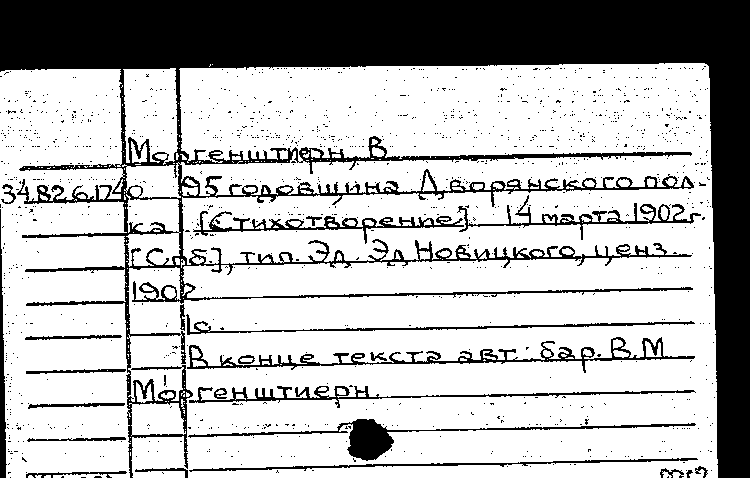 Моргенштиерн, В
34.82.6.1740 95 годовщина Дворянского пол-
ка [Стихотворение]. 14 марта 1902г.
[Спб.], тип. Эд. Эд. Новицкого, ценз.
1902
1с.
В конце текста авт: бар. В.М
Моргенштиерн.